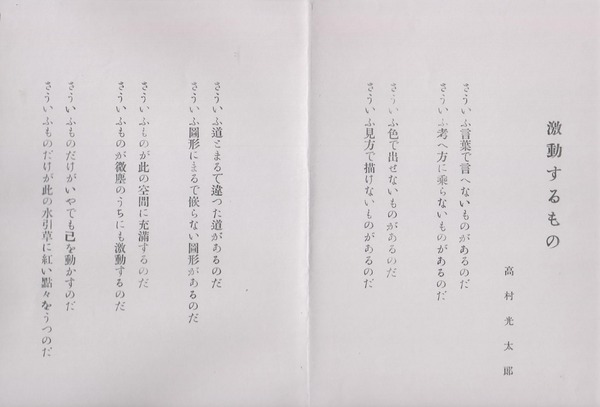 激動するもの
高村光太郎
さういふ言葉で言へないものがあるのだ
さういふ考へ方に乗らないものがあるのだ
さういふ色で出せないものがあるのだ
さういふ見方で描けないものがあるのだ
さういふ道とまるで違つた道があるのだ
さういふ圖形にまるで嵌らない圖形があるのだ
さういふものが此の空間に充滿するのだ
さういふものが微塵のうちにも激動するのだ
さういふものだけがいやでも己を動かすのだ
さういふものだけが此の水引草に紅い點々をうつのだ